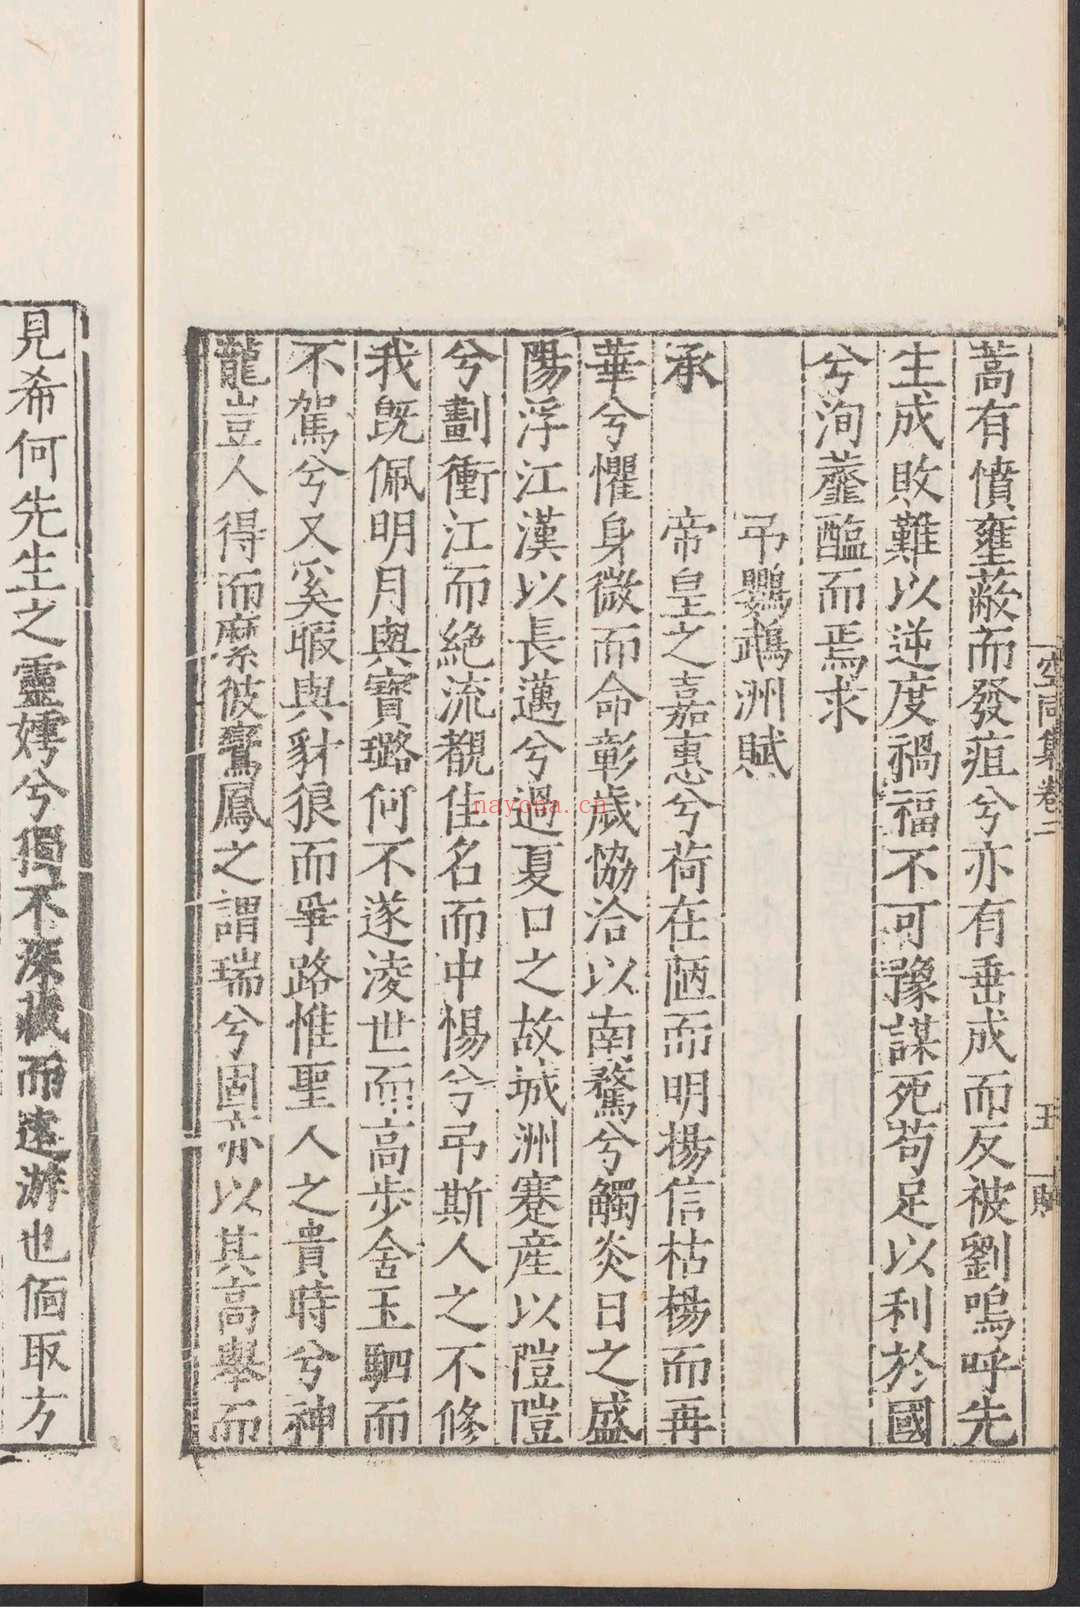 空同集卷二
五
蒿有憤壅蔽而發疽兮亦有垂成而反被劉嗚呼先
生成敗難以逆度禍福不可豫謀死苟足以利於國
兮洵虀醢而焉求
弔鸚鵡洲賦
承 帝皇之嘉惠兮荷在陋而明揚信枯楊而再
華兮懼身微而命彰歲協洽以南騖兮觸炎日之盛
陽浮江漢以長邁兮過夏口之故城洲蹇産以隑隑
兮劃衝江而絕流覩佳名而中惕兮弔斯人之不修
我旣佩明月與寶璐何不遂淩世而高步舍玉駟而
不駕兮又奚暇與豺狼而爭路惟聖人之貴時兮神
龍豈人得而縻彼鸞鳳之謂瑞兮固亦以其高舉而
見希何先生之靈嫮兮獨不深藏而遠游也偭取方
nayona.cn